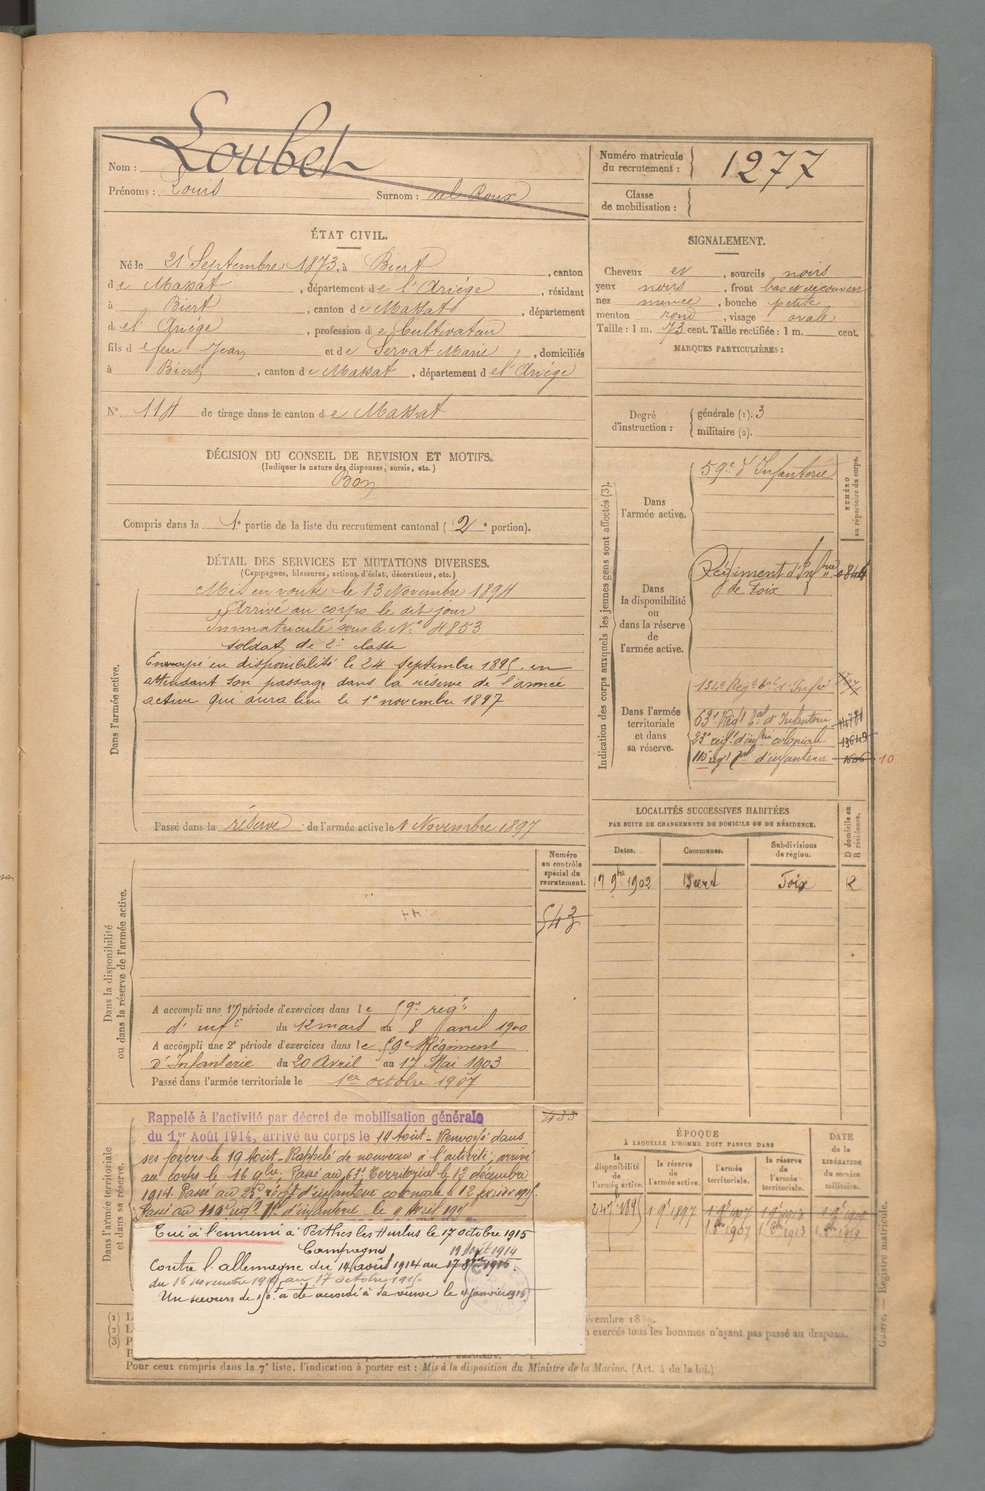 Nom : Loubet
Prénoms : Louis Surnom : del Roux
Numéro matricule du recrutement : 1277
Classe de mobilisation :
ÉTAT CIVIL.
Né le 21 Septembre 1873, à Biert, canton
de Massat, département de l'Ariège, résidant
à Biert, canton de Massat, département
de l'Ariège, profession de Cultivateur
fils de feu Jean et de Servat Marie, domiciliés
à Biert, canton de Massat, département de l'Ariège
N° 114 de tirage dans le canton de Massat
SIGNALEMENT.
Cheveux et, sourcils noirs
yeux noirs, front bas et découvert
nez mince, bouche petite
menton rond, visage ovale
Taille : 1 m. 73 cent. Taille rectifiée : 1 m. cent.
MARQUES PARTICULIÈRES :
Degré d'instruction : générale (1). 3
militaire (2).
DÉCISION DU CONSEIL DE REVISION ET MOTIFS.
(Indiquer la nature des dispenses, sursis, etc.)
Bon
Compris dans la 1e partie de la liste du recrutement cantonal (2e portion).
DÉTAIL DES SERVICES ET MUTATIONS DIVERSES.
(Campagnes, blessures, actions d'éclat, décorations, etc.)
Dans l'armée active.
Mis en route le 13 Novembre 1894
Arrivé au corps le dit jour
Immatriculé sous le N° 4853
soldat de 2e classe
Envoyé en disponibilité le 24 septembre 1895, en
attendant son passage dans la réserve de l'armée
active qui aura lieu le 1er novembre 1897
Passé dans la réserve de l'armée active le 1 Novembre 1897
Indication des corps auxquels les jeunes gens sont affectés (3).
NUMÉRO au répertoire du corps.
Dans l'armée active.
59e d'Infanterie
Dans la disponibilité ou dans la réserve de l'armée active.
Régiment d'Infrie
de Foix
Dans l'armée territoriale et dans sa réserve.
132e Régt tal d'Infie
63e Régt tal d'Infanterie
23e régt d'infrie coloniale 13649
110e régt tal d'infanterie 1606 10
LOCALITÉS SUCCESSIVES HABITÉES
PAR SUITE DE CHANGEMENTS DE DOMICILE OU DE RÉSIDENCE.
Dates. Communes. Subdivisions de région. D domicile ou R résidence.
17 9bre 1902 Biert Foix R
Numéro au contrôle spécial du recrutement.
543
Dans la disponibilité ou dans la réserve de l'armée active.
A accompli une 1re période d'exercices dans le 59e régt
d'infie du 12 mars au 8 avril 1900
A accompli une 2e période d'exercices dans le 59e Régiment
D'Infanterie du 20 Avril au 17 Mai 1903
Passé dans l'armée territoriale le 1er octobre 1907
Dans l'armée territoriale et dans sa réserve.
Rappelé à l'activité par décret de mobilisation générale
du 1er Août 1914, arrivé au corps le 14 Août - Renvoyé dans
ses foyers le 19 Août - Rappelé de nouveau à l'activité, arrivé
au corps le 16 9bre, Passé au 63e Territorial le 12 décembre
1914. Passé au 23e régt d'infanterie coloniale le 12 février 1915.
Passé au 110e régt d'infanterie le 9 Avril 1915
Tué à l'ennemi à Perthes les Hurlus le 17 octobre 1915
Campagne
19 Août 1914
Contre l'allemagne du 14 août 1914 au
du 16 novembre 1914 au 17 octobre 1915.
Un secours de 150f a été accordé à sa veuve le
ÉPOQUE
À LAQUELLE L'HOMME DOIT PASSER DANS
la disponibilité de l'armée active. la réserve de l'armée active. l'armée territoriale. la réserve de l'armée territoriale.
DATE de la LIBÉRATION du service militaire.
24 7 1895 1 9 1897
1 8bre 1907 1 8bre 1913 1 8bre 1919
(1)
(2)
(3)
exercés tous les hommes n'ayant pas passé au drapeau.
Pour ceux compris dans la 7e liste, l'indication à porter est : Mis à la disposition du Ministre de la Marine. (Art. 4 de la loi.)
Guerre. — Registre matricule.